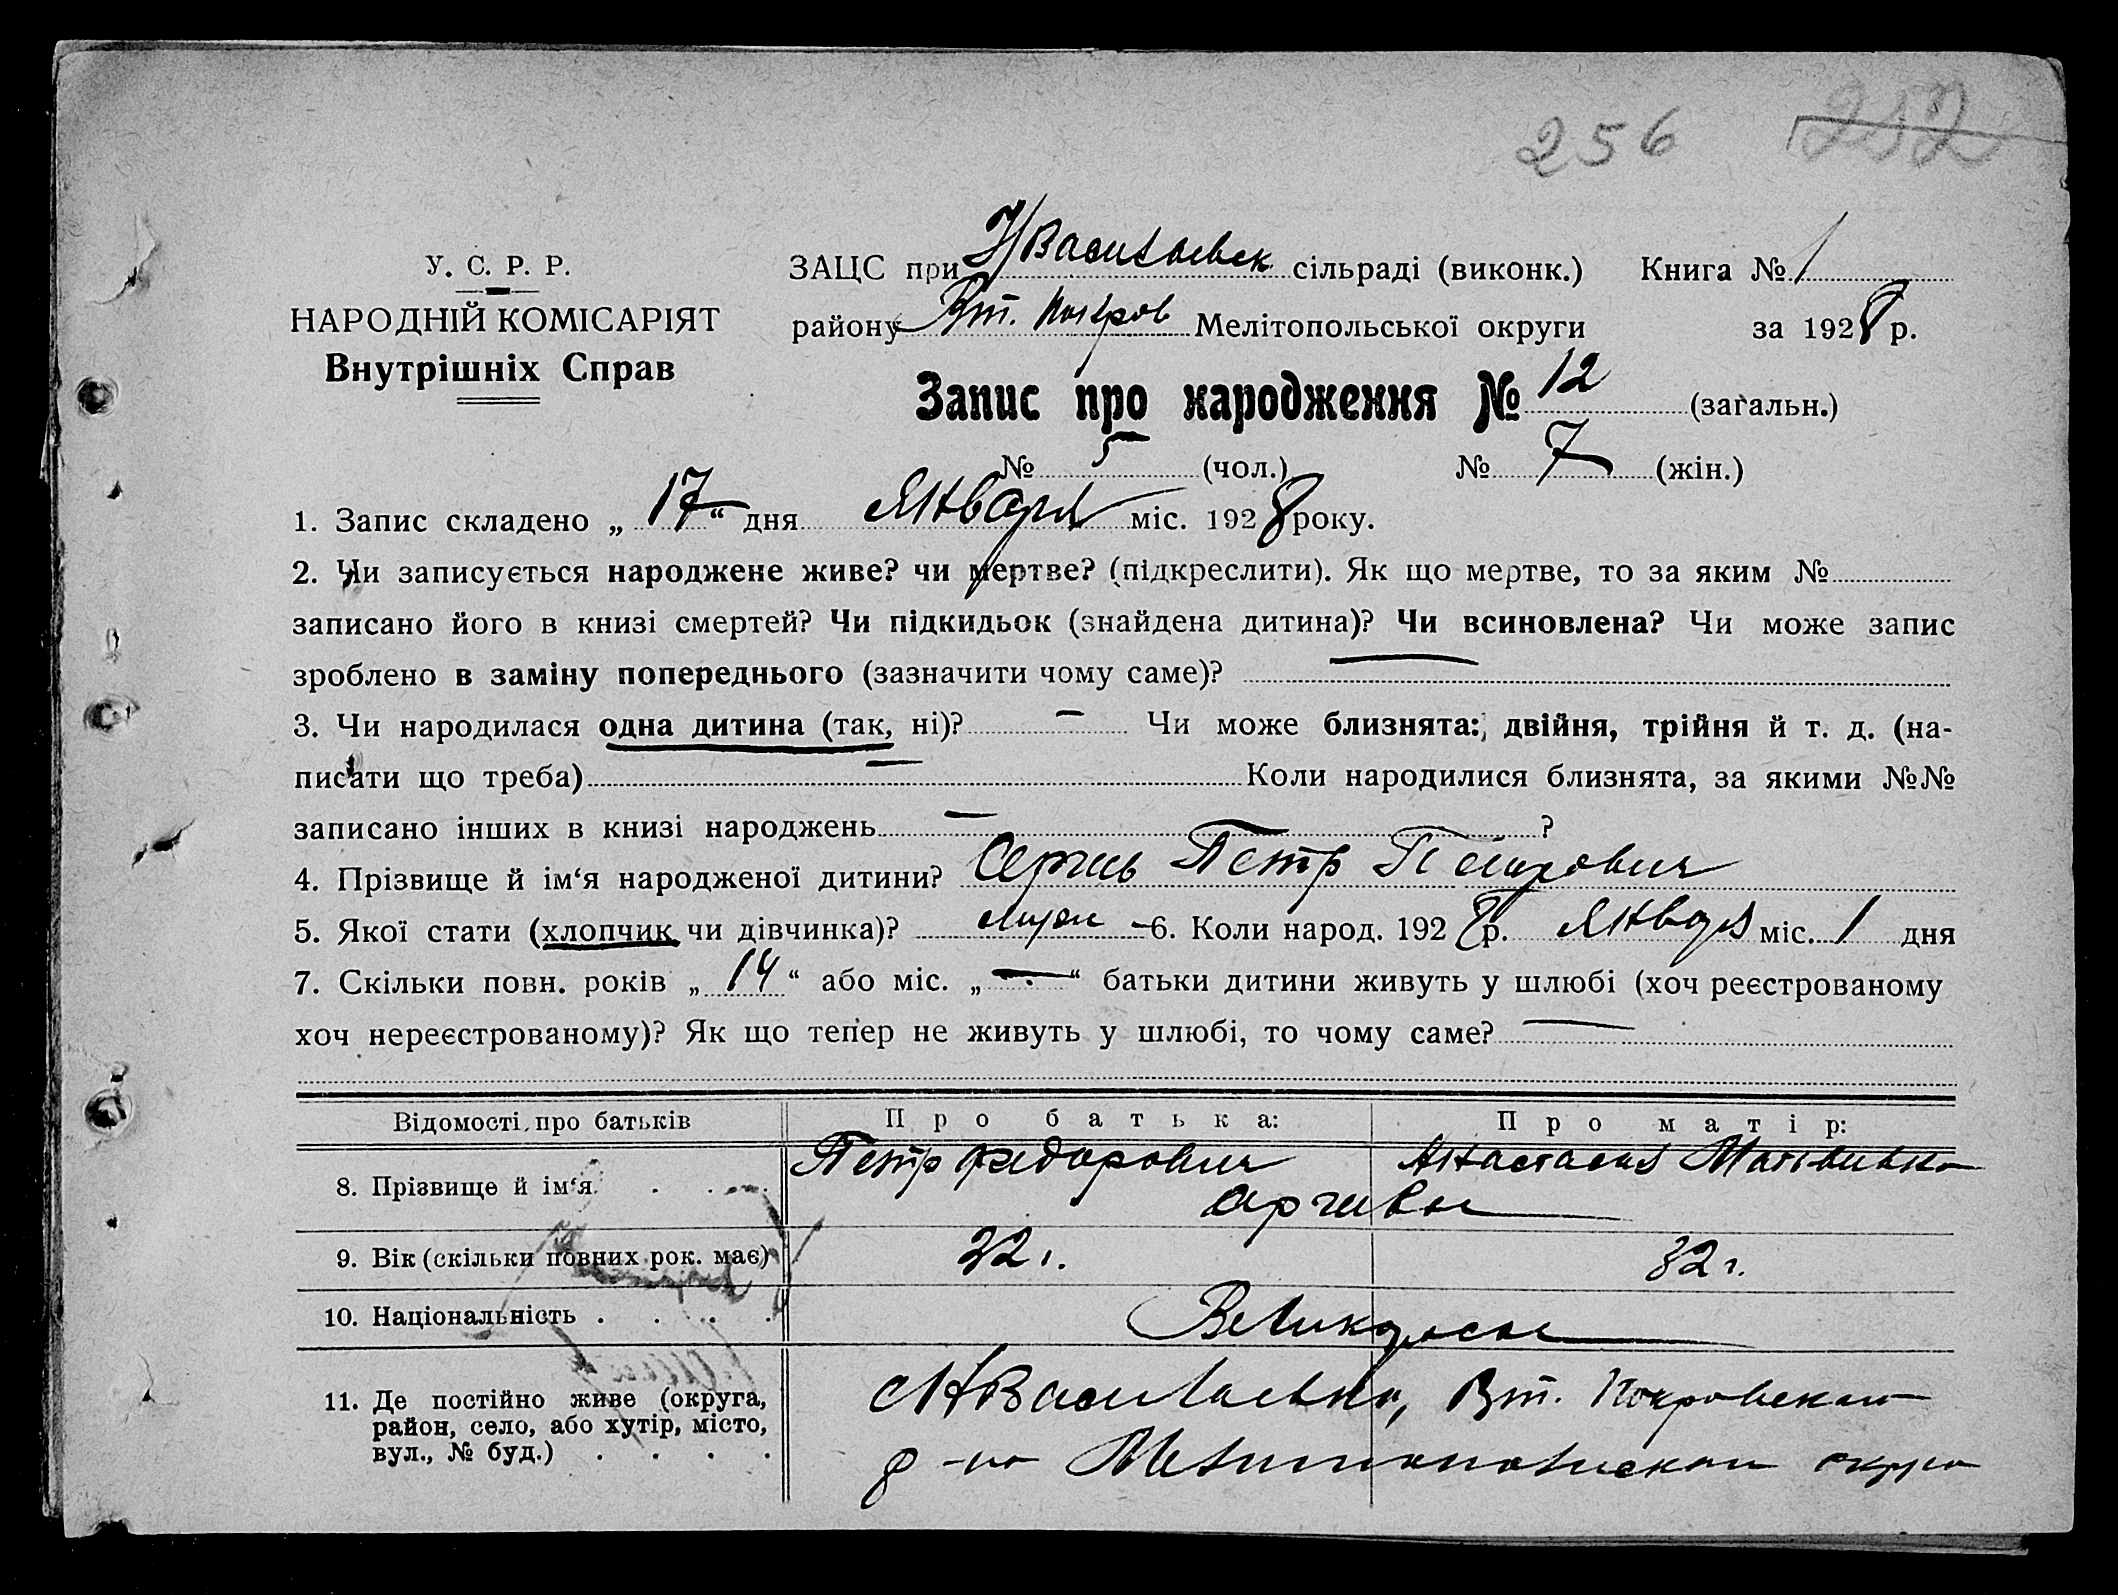 256 252
У. С. Р. Р.
НАРОДНІЙ КОМІСАРІЯТ
Внутрішніх Справ
ЗАЦС при Н/Васильевск сільраді (виконк.) Книга № 1
району Вт. Покров Мелітопольської округи за 1928 р.
Запис про народження № 12 (загальн.)
№ 5 (чол.) № 7 (жін.)
1. Запис складено „ 17 “ дня Января міс. 1928 року.
2. Чи записується народжене живе? чи мертве? (підкреслити). Як що мертве, то за яким №
записано його в книзі смертей? Чи підкидьок (знайдена дитина)? Чи всиновлена? Чи може запис
зроблено в заміну попереднього (зазначити чому саме)? —
3. Чи народилася одна дитина (так, ні)? — Чи може близнята: двійня, трійня й т. д. (на-
писати що треба) — Коли народилися близнята, за якими №№
записано інших в книзі народжень — ?
4. Прізвище й ім‘я народженої дитини? Петр Петрович
5. Якої стати (хлопчик чи дівчинка)? 6. Коли народ. 1928 р. Января міс. 1 дня
7. Скільки повн. років „ 14 “ або міс. „ — “ батьки дитини живуть у шлюбі (хоч реєстрованому
хоч нереєстрованому)? Як що тепер не живуть у шлюбі, то чому саме? —
Відомості про батьків Про батька: Про матір:
8. Прізвище й ім‘я Петр Федорович Анастасия
9. Вік (скільки повних рок. має) 32 г. 32 г.
10. Національність Великоросы
11. Де постійно живе (округа,
район, село, або хутір, місто,
вул., № буд.)
Н Васильевка, Вт. Покровского
р-на Мелитопольского округа